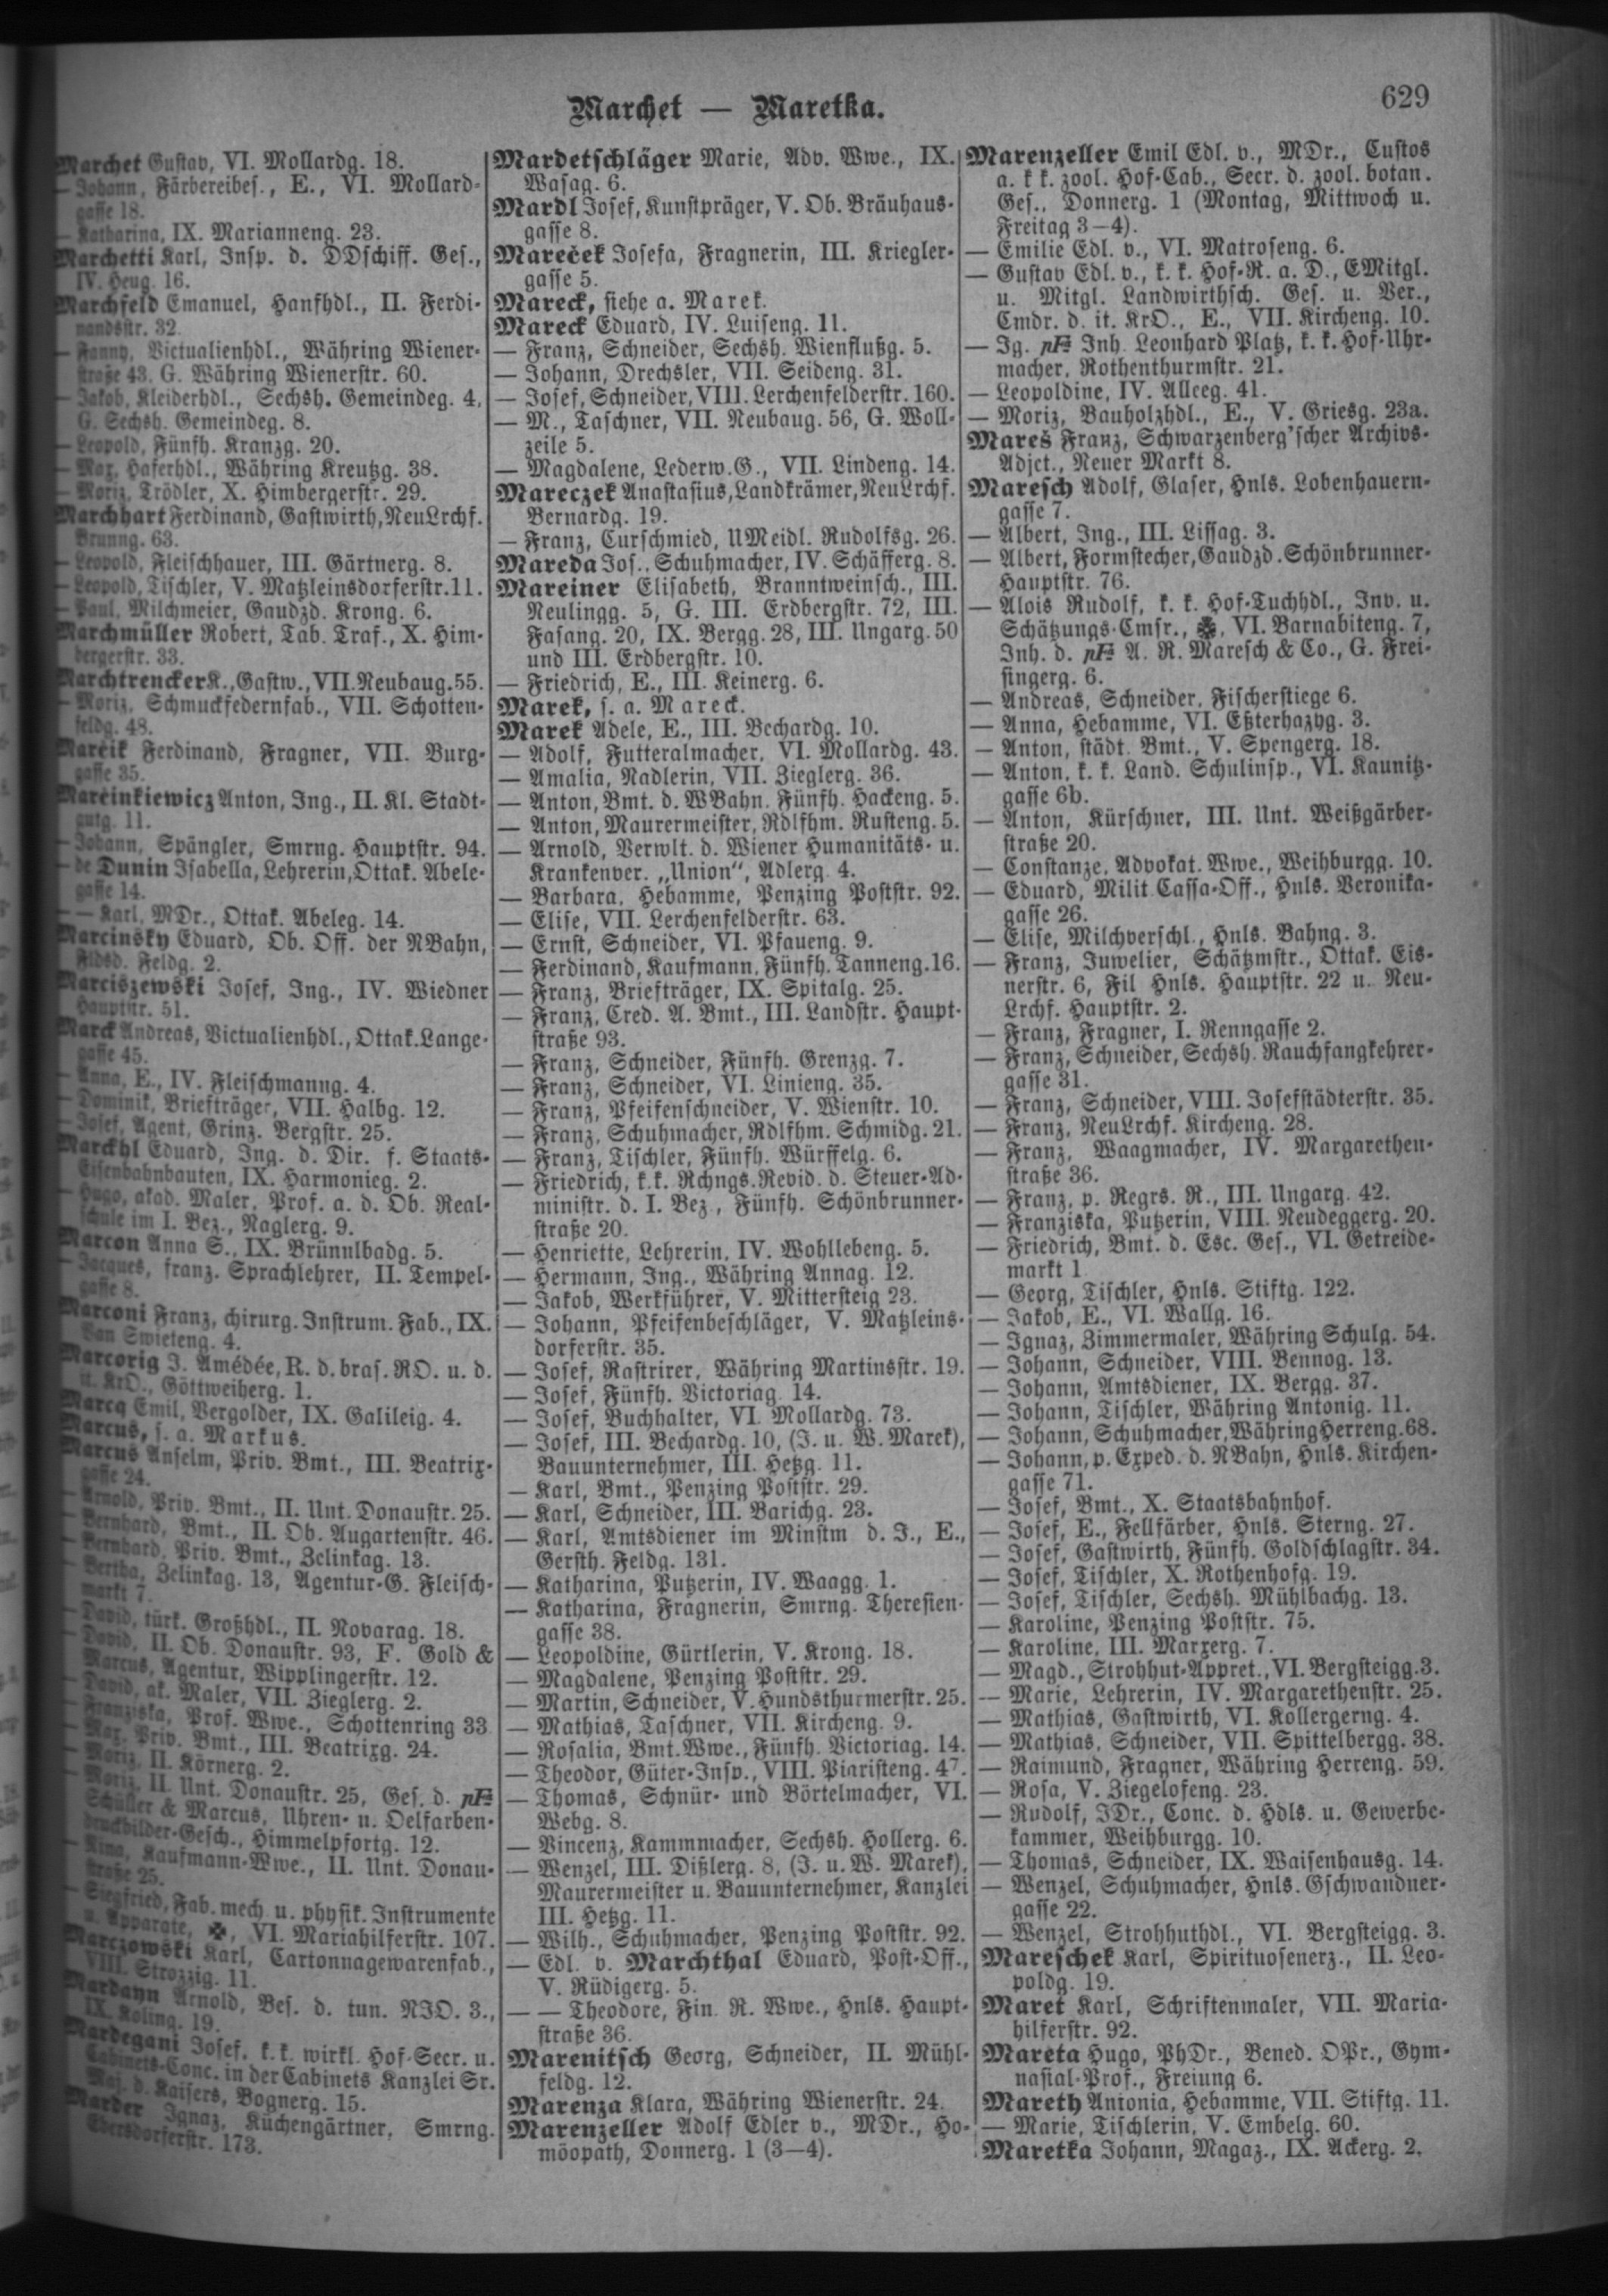 Marchet — Maretka.
629
Marchet Gustav, VI. Mollardg. 18.
— Johann, Färbereibes., E., VI. Mollard-
gasse 18.
— Katharina, IX. Marianneng. 23.
Marchetti Karl, Insp. d. DDschiff. Ges.,
IV. Heug. 16.
Marchfeld Emanuel, Hanfhdl., II. Ferdi-
nandsstr. 32
— Fanny, Victualienhdl., Währing Wiener-
straße 43. G. Währing Wienerstr. 60.
— Jakob, Kleiderhdl., Sechsh. Gemeindeg. 4,
G. Sechsh. Gemeindeg. 8.
— Leopold, Fünfh. Kranzg. 20.
— Max, Haferhdl., Währing Kreutzg. 38.
— Moriz, Trödler, X. Himbergerstr. 29.
Marchhart Ferdinand, Gastwirth, NeuLrchf.
Brunng. 63.
— Leopold, Fleischhauer, III. Gärtnerg. 8.
— Leopold, Tischler, V. Matzleinsdorferstr. 11.
— Paul, Milchmeier, Gaudzd. Krong. 6.
Marchmüller Robert, Tab. Traf., X. Him-
bergerstr. 33.
Marchtrencker K., Gastw., VII. Neubaug. 55.
— Moriz, Schmuckfedernfab., VII. Schotten-
feldg. 48.
Marčik Ferdinand, Fragner, VII. Burg-
gasse 35.
Marcinkiewicz Anton, Ing., II. Kl. Stadt-
gutg. 11.
— Johann, Spängler, Smrng. Hauptstr. 94.
— de Dunin Isabella, Lehrerin, Ottak. Abele-
gasse 14.
— — Karl, MDr., Ottak. Abeleg. 14.
Marcinsky Eduard, Ob. Off. der NBahn,
Fldsd. Feldg. 2.
Marciszewski Josef, Ing., IV. Wiedner
Hauptstr. 51.
Marck Andreas, Victualienhdl., Ottak. Lange-
gasse 45.
— Anna, E., IV. Fleischmanng. 4.
— Dominik, Briefträger, VII. Halbg. 12.
— Josef, Agent, Grinz. Bergstr. 25.
Marckhl Eduard, Ing. d. Dir. f. Staats-
Eisenbahnbauten, IX. Harmonieg. 2.
— Hugo, akad. Maler, Prof. a. d. Ob. Real-
schule im I. Bez., Naglerg. 9.
Marcon Anna S., IX. Brünnlbadg. 5.
— Jacques, franz. Sprachlehrer, II. Tempel-
gasse 8.
Marconi Franz, chirurg. Instrum. Fab., IX.
Van Swieteng. 4.
Marcorig J. Amédée, R. d. bras. RO. u. d.
it. KrO., Göttweiherg. 1.
Marcq Emil, Vergolder, IX. Galileig. 4.
Marcus, s. a. Markus.
Marcus Anselm, Priv. Bmt., III. Beatrix-
gasse 24.
— Arnold, Priv. Bmt., II. Unt. Donaustr. 25.
— Bernhard, Bmt., II. Ob. Augartenstr. 46.
— Bernhard, Priv. Bmt., Zelinkag. 13.
— Bertha, Zelinkag. 13, Agentur-G. Fleisch-
markt 7.
— David, türk. Großhdl., II. Novarag. 18.
— David, II. Ob. Donaustr. 93, F. Gold &
Marcus, Agentur, Wipplingerstr. 12.
— David, ak. Maler, VII. Zieglerg. 2.
— Franziska, Prof. Wwe., Schottenring 33
— Max, Priv. Bmt., III. Beatrixg. 24.
— Moriz, II. Körnerg. 2.
— Moriz, II. Unt. Donaustr. 25, Ges. d. pF
Schüller & Marcus, Uhren- u. Oelfarben-
druckbilder-Gesch., Himmelpfortg. 12.
— Nina, Kaufmann-Wwe., II. Unt. Donau-
straße 25.
— Siegfried, Fab. mech. u. physik. Instrumente
u. Apparate, ✠, VI. Mariahilferstr. 107.
Marczowski Karl, Cartonnagewarenfab.,
VIII. Strozzig. 11.
Mardayn Arnold, Bes. d. tun. NJO. 3.,
IX. Koling. 19.
Mardegani Josef, k. k. wirkl. Hof-Secr. u.
Cabinets-Conc. in der Cabinets Kanzlei Sr.
Maj. d. Kaisers, Bognerg. 15.
Marder Ignaz, Küchengärtner, Smrng.
Ebersdorferstr. 173.
Mardetschläger Marie, Adv. Wwe., IX.
Wasag. 6.
Mardl Josef, Kunstpräger, V. Ob. Bräuhaus-
gasse 8.
Mareček Josefa, Fragnerin, III. Kriegler-
gasse 5.
Mareck, siehe a. Marek.
Mareck Eduard, IV. Luiseng. 11.
— Franz, Schneider, Sechsh. Wienflußg. 5.
— Johann, Drechsler, VII. Seideng. 31.
— Josef, Schneider, VIII. Lerchenfelderstr. 160.
— M., Taschner, VII. Neubaug. 56, G. Woll-
zeile 5.
— Magdalene, Lederw.G., VII. Lindeng. 14.
Mareczek Anastasius, Landkrämer, NeuLrchf.
Bernardg. 19.
— Franz, Curschmied, UMeidl. Rudolfsg. 26.
Mareda Jos., Schuhmacher, IV. Schäfferg. 8.
Mareiner Elisabeth, Branntweinsch., III.
Neulingg. 5, G. III. Erdbergstr. 72, III.
Fasang. 20, IX. Bergg. 28, III. Ungarg. 50
und III. Erdbergstr. 10.
— Friedrich, E., III. Keinerg. 6.
Marek, s. a. Mareck.
Marek Adele, E., III. Bechardg. 10.
— Adolf, Futteralmacher, VI. Mollardg. 43.
— Amalia, Nadlerin, VII. Zieglerg. 36.
— Anton, Bmt. d. WBahn. Fünfh. Hackeng. 5.
— Anton, Maurermeister, Rdlfhm. Rusteng. 5.
— Arnold, Verwlt. d. Wiener Humanitäts- u.
Krankenver. „Union“, Adlerg. 4.
— Barbara, Hebamme, Penzing Poststr. 92.
— Elise, VII. Lerchenfelderstr. 63.
— Ernst, Schneider, VI. Pfaueng. 9.
— Ferdinand, Kaufmann, Fünfh. Tanneng. 16.
— Franz, Briefträger, IX. Spitalg. 25.
— Franz, Cred. A. Bmt., III. Landstr. Haupt-
straße 93.
— Franz, Schneider, Fünfh. Grenzg. 7.
— Franz, Schneider, VI. Linieng. 35.
— Franz, Pfeifenschneider, V. Wienstr. 10.
— Franz, Schuhmacher, Rdlfhm. Schmidg. 21.
— Franz, Tischler, Fünfh. Würffelg. 6.
— Friedrich, k.k. Rchngs.Revid. d. Steuer-Ad-
ministr. d. I. Bez., Fünfh. Schönbrunner-
straße 20.
— Henriette, Lehrerin, IV. Wohllebeng. 5.
— Hermann, Ing., Währing Annag. 12.
— Jakob, Werkführer, V. Mittersteig 23.
— Johann, Pfeifenbeschläger, V. Matzleins-
dorferstr. 35.
— Josef, Rastrirer, Währing Martinsstr. 19.
— Josef, Fünfh. Victoriag. 14.
— Josef, Buchhalter, VI. Mollardg. 73.
— Josef, III. Bechardg. 10, (J. u. W. Marek),
Bauunternehmer, III. Hetzg. 11.
— Karl, Bmt., Penzing Poststr. 29.
— Karl, Schneider, III. Barichg. 23.
— Karl, Amtsdiener im Minstm d. J., E.,
Gersth. Feldg. 131.
— Katharina, Putzerin, IV. Waagg. 1.
— Katharina, Fragnerin, Smrng. Theresien-
gasse 38.
— Leopoldine, Gürtlerin, V. Krong. 18.
— Magdalene, Penzing Poststr. 29.
— Martin, Schneider, V. Hundsthurmerstr. 25.
— Mathias, Taschner, VII. Kircheng. 9.
— Rosalia, Bmt.Wwe., Fünfh. Victoriag. 14.
— Theodor, Güter-Insp., VIII. Piaristeng. 47.
— Thomas, Schnür- und Börtelmacher, VI.
Webg. 8.
— Vincenz, Kammmacher, Sechsh. Hollerg. 6.
— Wenzel, III. Dißlerg. 8, (J. u. W. Marek),
Maurermeister u. Bauunternehmer, Kanzlei
III. Hetzg. 11.
— Wilh., Schuhmacher, Penzing Poststr. 92.
— Edl. v. Marchthal Eduard, Post-Off.,
V. Rüdigerg. 5.
— — Theodore, Fin. R. Wwe., Hnls. Haupt-
straße 36.
Marenitsch Georg, Schneider, II. Mühl-
feldg. 12.
Marenza Klara, Währing Wienerstr. 24.
Marenzeller Adolf Edler v., MDr., Ho-
möopath, Donnerg. 1 (3—4).
Marenzeller Emil Edl. v., MDr., Custos
a. k k. zool. Hof-Cab., Secr. d. zool. botan.
Ges., Donnerg. 1 (Montag, Mittwoch u.
Freitag 3—4).
— Emilie Edl. v., VI. Matroseng. 6.
— Gustav Edl. v., k. k. Hof-R. a. D., EMitgl.
u. Mitgl. Landwirthsch. Ges. u. Ver.,
Cmdr. d. it. KrO., E., VII. Kircheng. 10.
— Ig. pF Inh. Leonhard Platz, k. k. Hof-Uhr-
macher, Rothenthurmstr. 21.
— Leopoldine, IV. Alleeg. 41.
— Moriz, Bauholzhdl., E., V. Griesg. 23a.
Mareš Franz, Schwarzenberg'scher Archivs-
Adjct., Neuer Markt 8.
Maresch Adolf, Glaser, Hnls. Lobenhauern-
gasse 7.
— Albert, Ing., III. Lissag. 3.
— Albert, Formstecher, Gaudzd. Schönbrunner-
Hauptstr. 76.
— Alois Rudolf, k. k. Hof-Tuchhdl., Inv. u.
Schätzungs-Cmsr., ✠, VI. Barnabiteng. 7,
Inh. d. pF A. R. Maresch & Co., G. Frei-
singerg. 6.
— Andreas, Schneider, Fischerstiege 6.
— Anna, Hebamme, VI. Eßterhazyg. 3.
— Anton, städt. Bmt., V. Spengerg. 18.
— Anton, k. k. Land. Schulinsp., VI. Kaunitz-
gasse 6b.
— Anton, Kürschner, III. Unt. Weißgärber-
straße 20.
— Constanze, Advokat. Wwe., Weihburgg. 10.
— Eduard, Milit. Cassa-Off., Hnls. Veronika-
gasse 26.
— Elise, Milchverschl., Hnls. Bahng. 3.
— Franz, Juwelier, Schätzmstr., Ottak. Eis-
nerstr. 6, Fil Hnls. Hauptstr. 22 u. Neu-
Lrchf. Hauptstr. 2.
— Franz, Fragner, I. Renngasse 2.
— Franz, Schneider, Sechsh. Rauchfangkehrer-
gasse 31.
— Franz, Schneider, VIII. Josefstädterstr. 35.
— Franz, NeuLrchf. Kircheng. 28.
— Franz, Waagmacher, IV. Margarethen-
straße 36.
— Franz, p. Regrs. R., III. Ungarg. 42.
— Franziska, Putzerin, VIII. Neudeggerg. 20.
— Friedrich, Bmt. d. Esc. Ges., VI. Getreide-
markt 1
— Georg, Tischler, Hnls. Stiftg. 122.
— Jakob, E., VI. Wallg. 16.
— Ignaz, Zimmermaler, Währing Schulg. 54.
— Johann, Schneider, VIII. Bennog. 13.
— Johann, Amtsdiener, IX. Bergg. 37.
— Johann, Tischler, Währing Antonig. 11.
— Johann, Schuhmacher, Währing Herreng. 68.
— Johann, p. Exped. d. NBahn, Hnls. Kirchen-
gasse 71.
— Josef, Bmt., X. Staatsbahnhof.
— Josef, E., Fellfärber, Hnls. Sterng. 27.
— Josef, Gastwirth, Fünfh. Goldschlagstr. 34.
— Josef, Tischler, X. Rothenhofg. 19.
— Josef, Tischler, Sechsh. Mühlbachg. 13.
— Karoline, Penzing Poststr. 75.
— Karoline, III. Marxerg. 7.
— Magd., Strohhut-Appret., VI. Bergsteigg. 3.
— Marie, Lehrerin, IV. Margarethenstr. 25.
— Mathias, Gastwirth, VI. Kollergerng. 4.
— Mathias, Schneider, VII. Spittelbergg. 38.
— Raimund, Fragner, Währing Herreng. 59.
— Rosa, V. Ziegelofeng. 23.
— Rudolf, JDr., Conc. d. Hdls. u. Gewerbe-
kammer, Weihburgg. 10.
— Thomas, Schneider, IX. Waisenhausg. 14.
— Wenzel, Schuhmacher, Hnls. Gschwandner-
gasse 22.
— Wenzel, Strohhuthdl., VI. Bergsteigg. 3.
Mareschek Karl, Spirituosenerz., II. Leo-
poldg. 19.
Maret Karl, Schriftenmaler, VII. Maria-
hilferstr. 92.
Mareta Hugo, PhDr., Bened. OPr., Gym-
nasial-Prof., Freiung 6.
Mareth Antonia, Hebamme, VII. Stiftg. 11.
— Marie, Tischlerin, V. Embelg. 60.
Maretka Johann, Magaz., IX. Ackerg. 2.